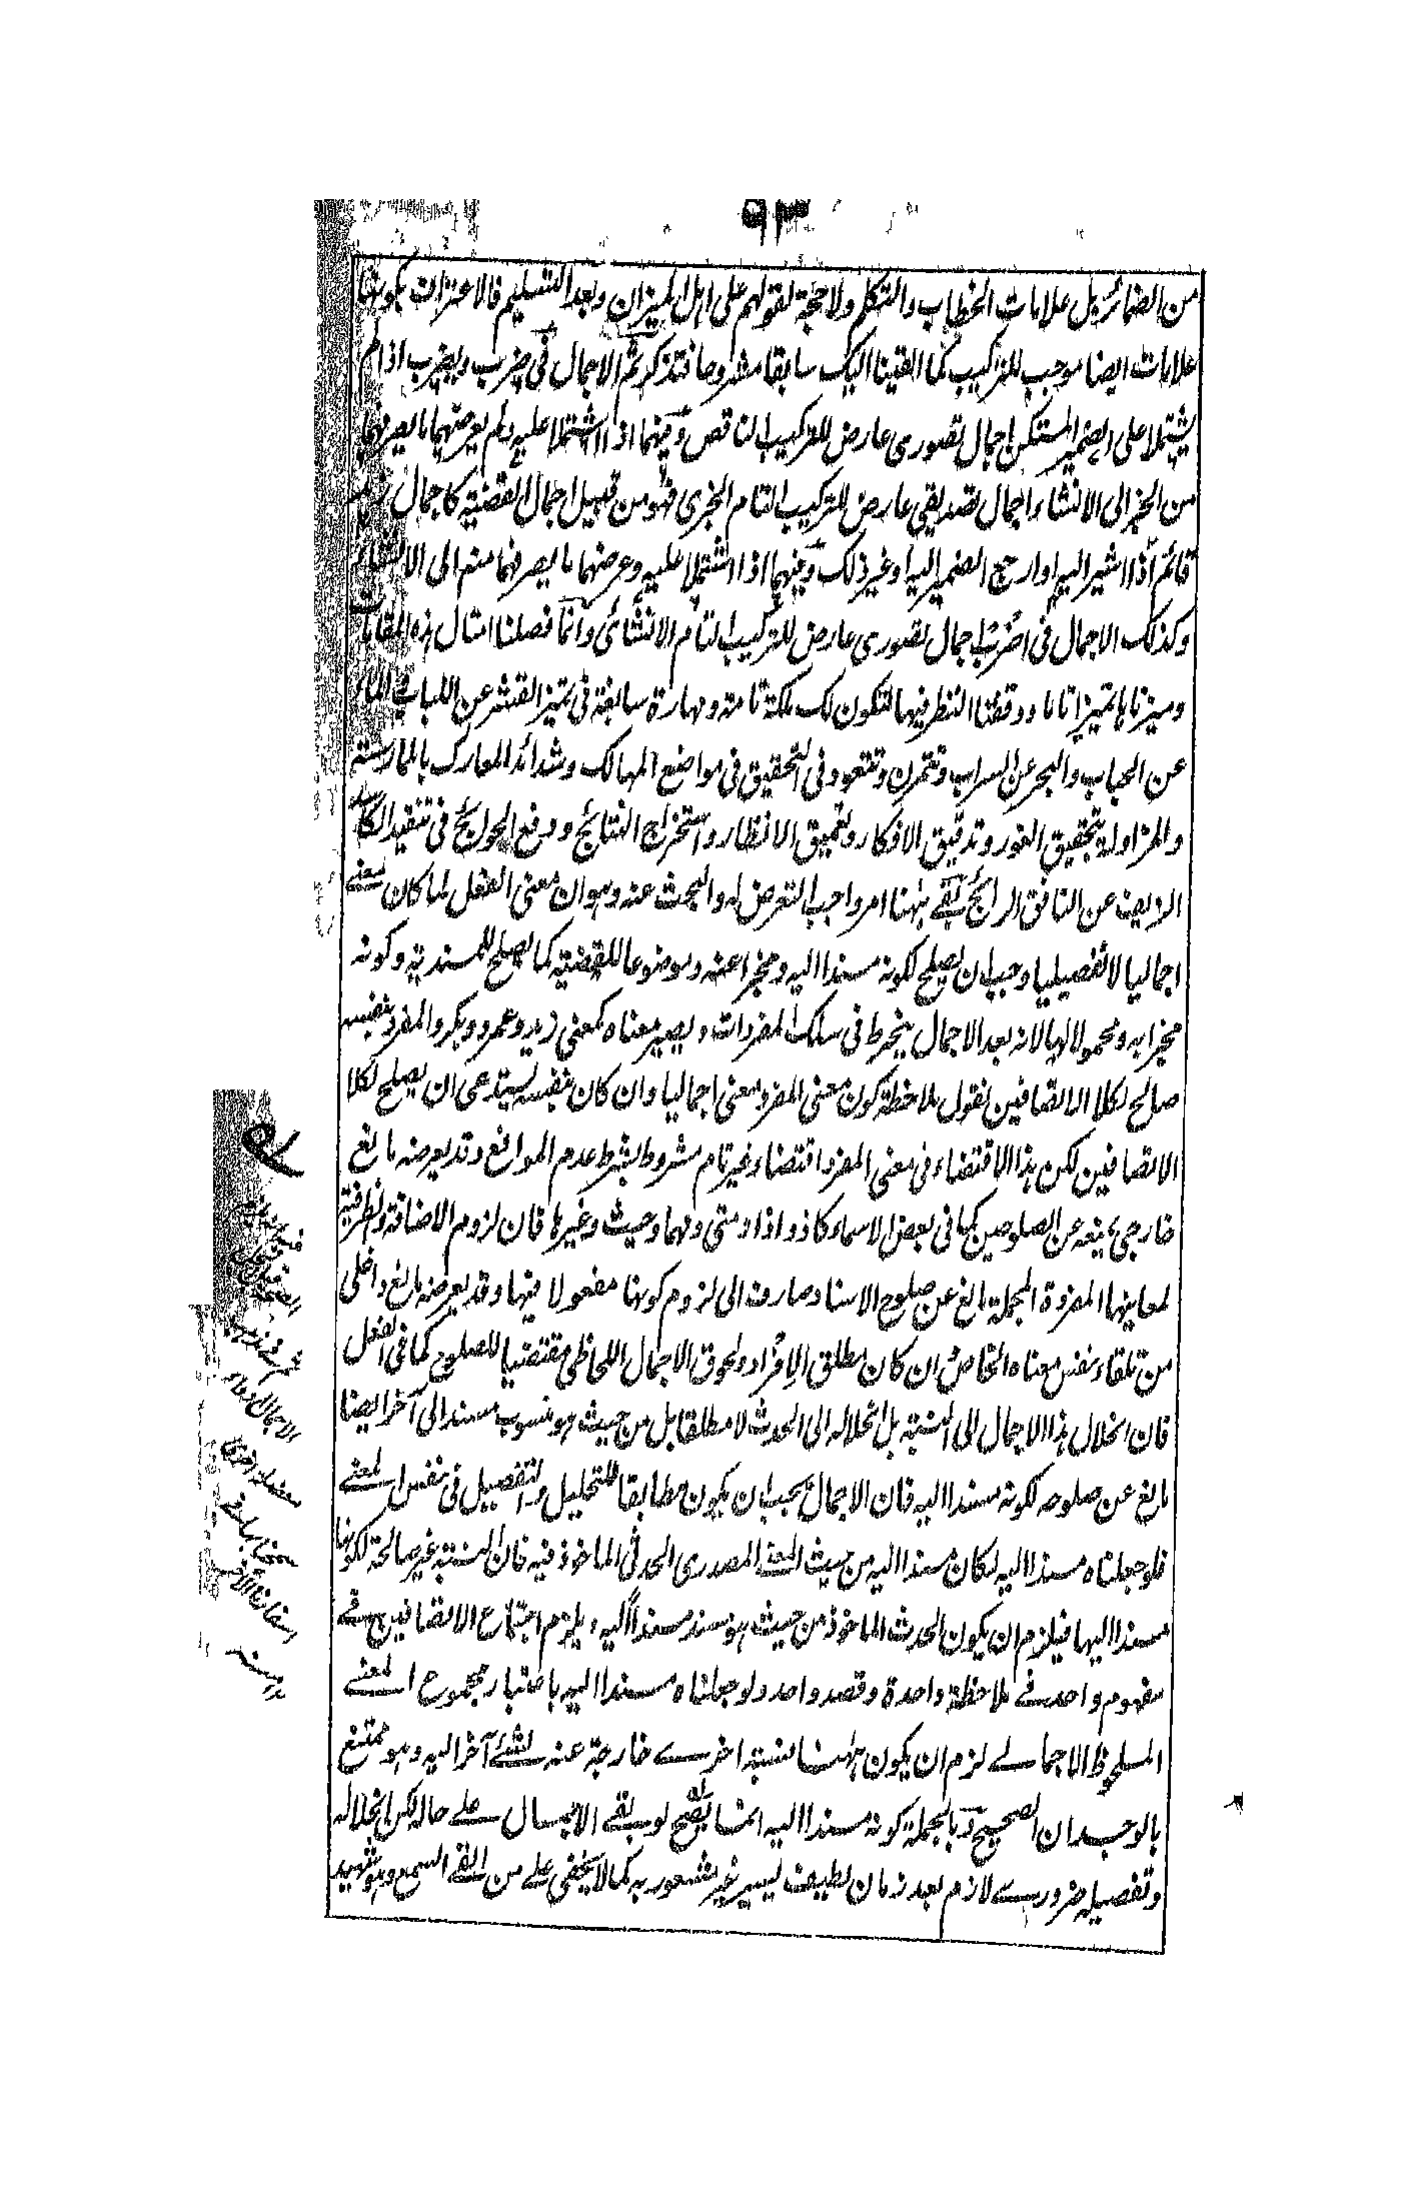 ٩٣
من الضمائر بل علامات الخطاب والتكلم ولا حجة لقولهم على اهل الميزان وبعد التسليم فالاعتراف بكونها
علامات ايضا موجب للتركيب كما القينا اليك سابقا مشروحا فتذكر ثم الاجمال فى ضرب ويضرب اذا لم
يشتملا على الضمير المستكن اجمال تصورى عارض للتركيب الناقص وفيهما اذا اشتملا عليه ولم يعرضهما ما يصرفهما
من الخبر الى الانشاء اجمال تصديقى عارض للتركيب التام الخبرى فهو من قبيل اجمال القضية كاجمال زيد
قائم اذا اشير اليه او ارجع الضمير اليه او غير ذلك وفيهما اذا اشتملا عليه وعرضهما ما يصرفهما منه الى الانشاء
وكذلك الاجمال فى اضرب اجمال تصورى عارض للتركيب التام الانشائى وانما فصلنا امثال هذه المقامات
وميزناها تميزا تاما ودققنا النظر فيها لتكون لك ملكة تامة ومهارة سابغة فى تميز القشر عن اللباب والماء
عن الحباب والبحر عن السراب وتتمرن وتتعود فى التحقيق فى مواضع المهالك وشدائد المعارك بالممارسة
والمزاولة بتحقيق الغور وتدقيق الافكار وتعميق الانظار واستخراج النتائج ودفع الحوائج فى تنقيد الكاسد
الزيف عن النافق الرائج بقى ههنا امر واجب التعرض له والبحث عنه وهو ان معنى الفعل لما كان معنى
اجماليا لا تفصيليا وجب ان يصلح لكونه مسندا اليه ومخبرا عنه وموضوعا للقضية كما يصلح للمسندية وكونه
مخبرا به ومحمولا لها لانه بعد الاجمال ينخرط فى سلك المفردات ويصير معناه كمعنى زيد وعمرو وبكر والمفرد بنفسه
صالح لكلا الاتصافين نقول ملاحظة كون معنى المفرد معنى اجماليا وان كان بنفسه يستدعى ان يصلح لكلا
الاتصافين لكن هذا الاقتضاء فى معنى المفرد اقتضاء غير تام مشروط بشرط عدم الموانع وقد يعرضه مانع
خارجى يمنعه عن الصلوحين كما فى بعض الاسماء كاذ واذا ومتى ومهما وحيث وغيرها فان لزوم الاضافة والظرفية
لمعانيها المفردة المجملة مانع عن صلوح الاسناد وصارف الى لزوم كونها مفعولا فيها وقد يعرضه مانع داخلى
من تلقاء نفس معناه الخاص ان كان مطلق الافراد ولحوق الاجمال اللحاظى مقتضيا للصلوح كما فى الفعل
فان انحلال هذا الاجمال الى النسبة بل انحلاله الى الحدث لا مطلقا بل من حيث هو منسوب مسند الى آخر ايضا
مانع عن صلوحه لكونه مسندا اليه فان الاجمال يجب ان يكون مطابقا للتحليل والتفصيل فى نفس المعنى
فلو جعلناه مسندا اليه لكان مسندا اليه من حيث المعنى المصدرى الحدثى الماخوذ فيه فان النسبة غير صالحة لكونها
مسندا اليها فيلزم ان يكون الحدث الماخوذ من حيث هو مسند مسندا اليه ويلزم اجتماع الاتصافين فى
مفهوم واحد فى ملاحظة واحدة وقصد واحد ولو جعلناه مسندا اليه باعتبار مجموع المعنى
الملحوظ الاجمالى لزم ان يكون ههنا نسبة اخرى خارجة عنه لشئ آخر اليه وهو ممتنع
بالوجدان الصحيح وبالجملة كونه مسندا اليه انما يصح لو بقى الاجمال على حاله لكن انحلاله
وتفصيله ضرورى لازم بعد زمان لطيف يسير غير مشعور به كما لا يخفى على من القى السمع وهو شهيد